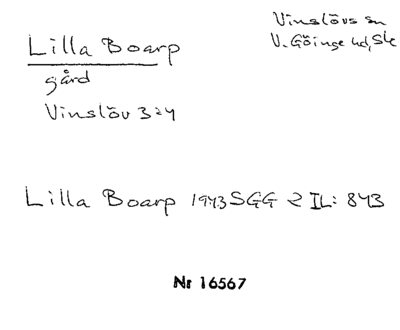 Vinslövs sn
V. Göinge hd, Sk
Lilla Boarp
gård
Vinslöv 3:4
Lilla Boarp 1943 SGG 2 IL: 843
Nr 16567